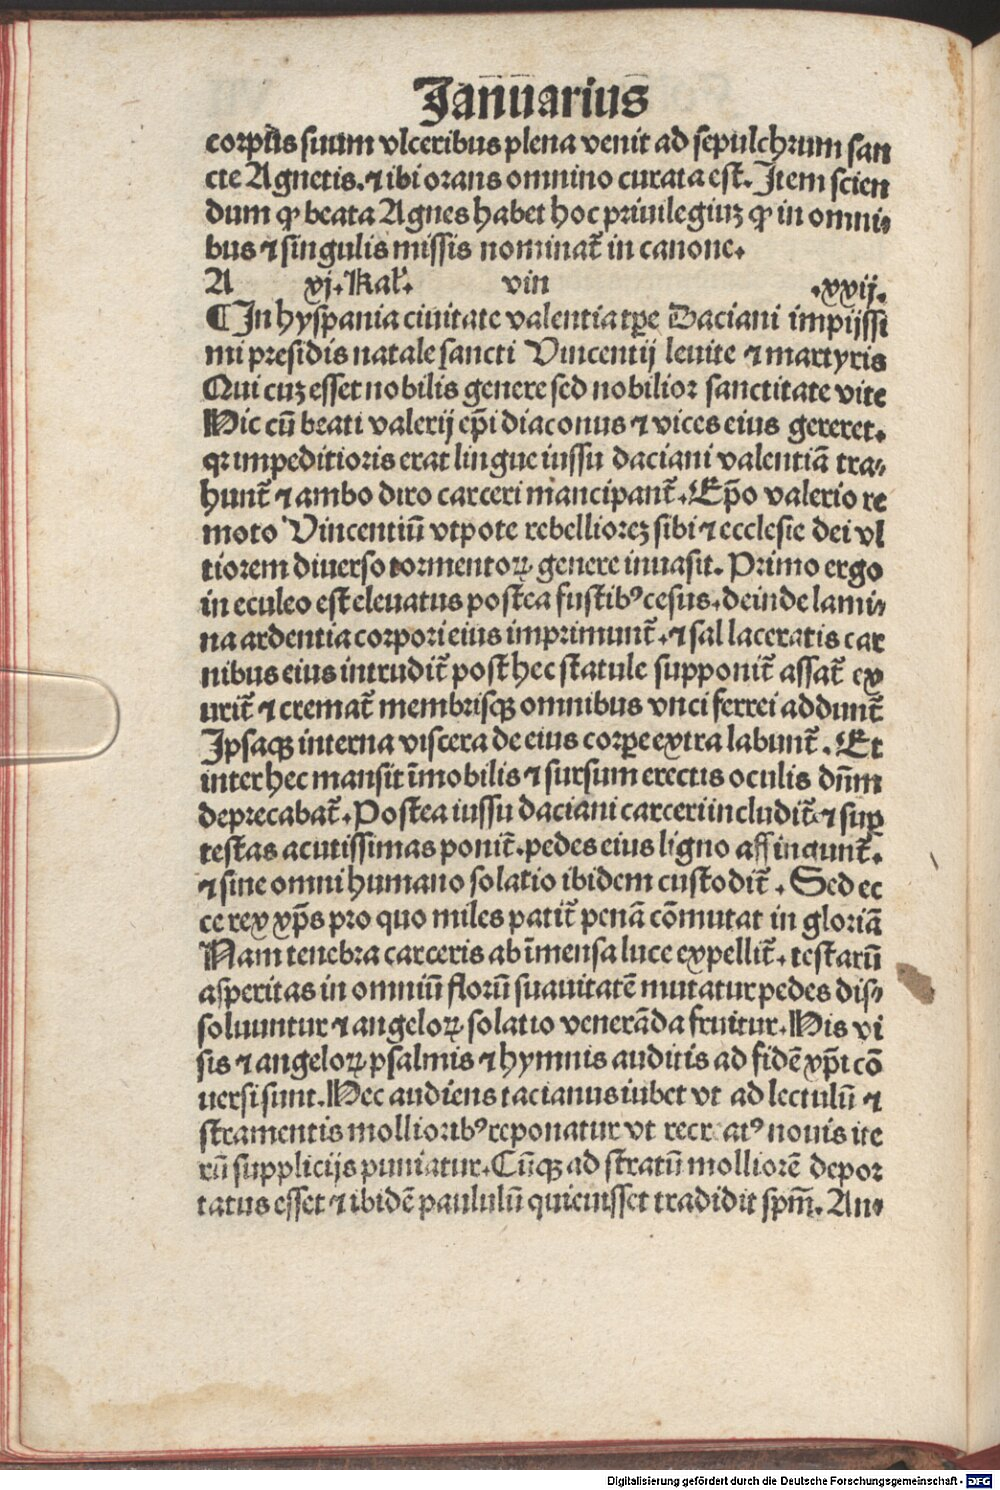 Jan̄ūarius̄
corpus suum vlceribus plena venit ad sepulchrum san
cte Agnetis. ⁊ ibi orans omnino curata est. Item scien
dum ꝙ beata Agnes habet hoc priuilegiuꝫ ꝙ in omni⸗
bus ⁊ singulis missis nominat̄ in canone.
A xj. Kal̓. vin .xxij.
¶ In hyspania ciuitate valentia tꝑe Daciani impijssi
mi presidis natale sancti Vincentij leuite ⁊ martyris
Qui cuꝫ esset nobilis genere sed nobilior sanctitate vite
Hic cū beati valerij ep̄i diaconus ⁊ vices eius gereret.
qꝛ impeditioris erat lingue iussu daciani valentiā tra⸗
hunt̄ ⁊ ambo diro carceri mancipant̄. Ep̄o valerio re
moto Vincentiū vtpote rebellioreꝫ sibi ⁊ ecclesie dei vl
tiorem diuerso tormentoꝝ genere inuasit. Primo ergo
in eculeo est eleuatus postea fustibꝰ cesus. deinde lami⸗
na ardentia corpori eius imprimunt̄. ⁊ sal laceratis car
nibus eius intrudit̄ post hec statule supponit̄ assat̄ ex
urit̄ ⁊ cremat̄ membrisqꝫ omnibus vnci ferrei addunt̄
Ipsaqꝫ interna viscera de eius corꝑe extra labunt̄. Et
inter hec mansit īmobilis ⁊ sursum erectus oculis dn̄m
deprecabat̄. Postea iussu daciani carceri includit̄ ⁊ suꝑ
testas acutissimas ponit̄. pedes eius ligno affingunt̄.
⁊ sine omni humano solatio ibidem custodit̄. Sed ec
ce rex xp̄s pro quo miles patit̄ penā cōmutat in gloriā
Nam tenebra carceris ab īmensa luce expellit̄. testarū
asperitas in omniū florū suauitatē mutatur pedes dis⸗
soluuntur ⁊ angeloꝝ solatio venerāda fruitur. His vi
sis ⁊ angeloꝝ psalmis ⁊ hymnis auditis ad fidē xp̄i cō
uersi sunt. Hec audiens tacianus iubet vt ad lectulū ⁊
stramentis mollioribꝰ reponatur vt recreatꝰ nouis ite
rū supplicijs puniatur. Cūqꝫ ad stratū molliorē depor
tatus esset ⁊ ibidē paululū quieuisset tradidit spm̄. An⸗
Digitalisierung gefördert durch die Deutsche Forschungsgemeinschaft - DFG